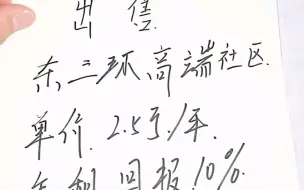 出售
东三环高端社区.
单价.2.5万/平.
年利回报.10%